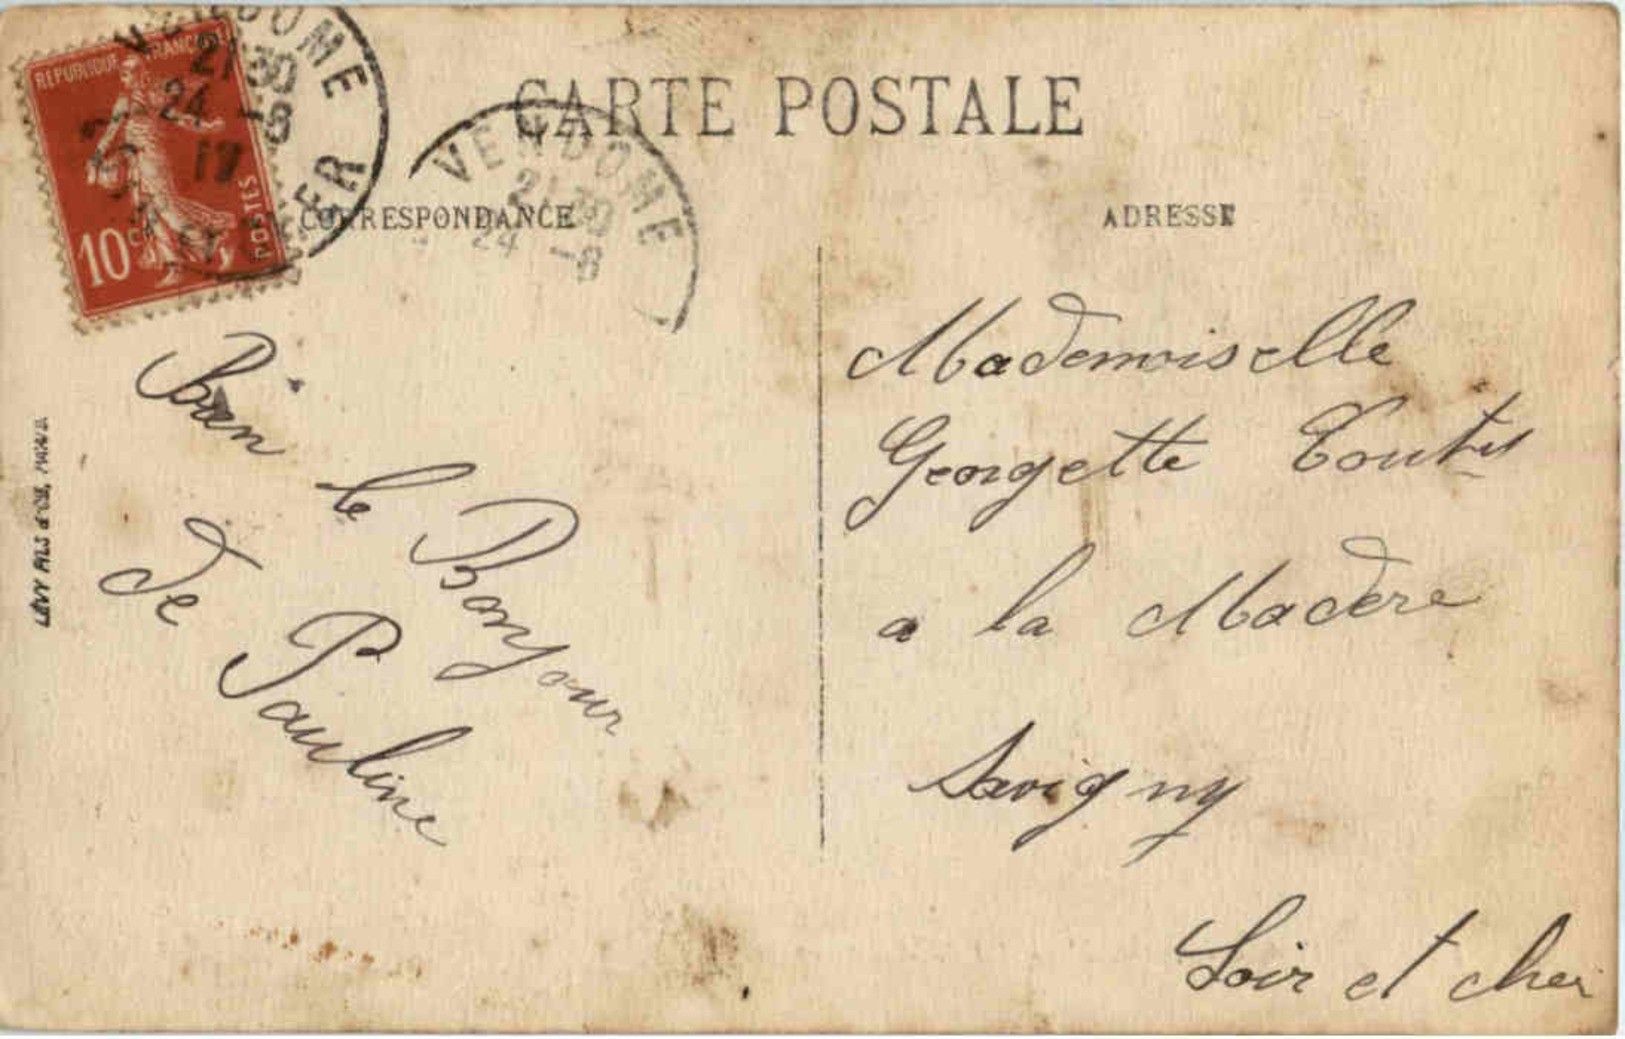 REPUBLIQUE FRANCAISE
10
POSTES
VENDOME
21 30
24 -8
17
CHER
VENDOME
21 30
24 -8
CARTE POSTALE
CORRESPONDANCE
ADRESSE
Bien le Bonjour
de Pauline
Mademoiselle
Georgette
a la Madère
Savigny
Loir et cher
LÉVY FILS & CIE, PARIS